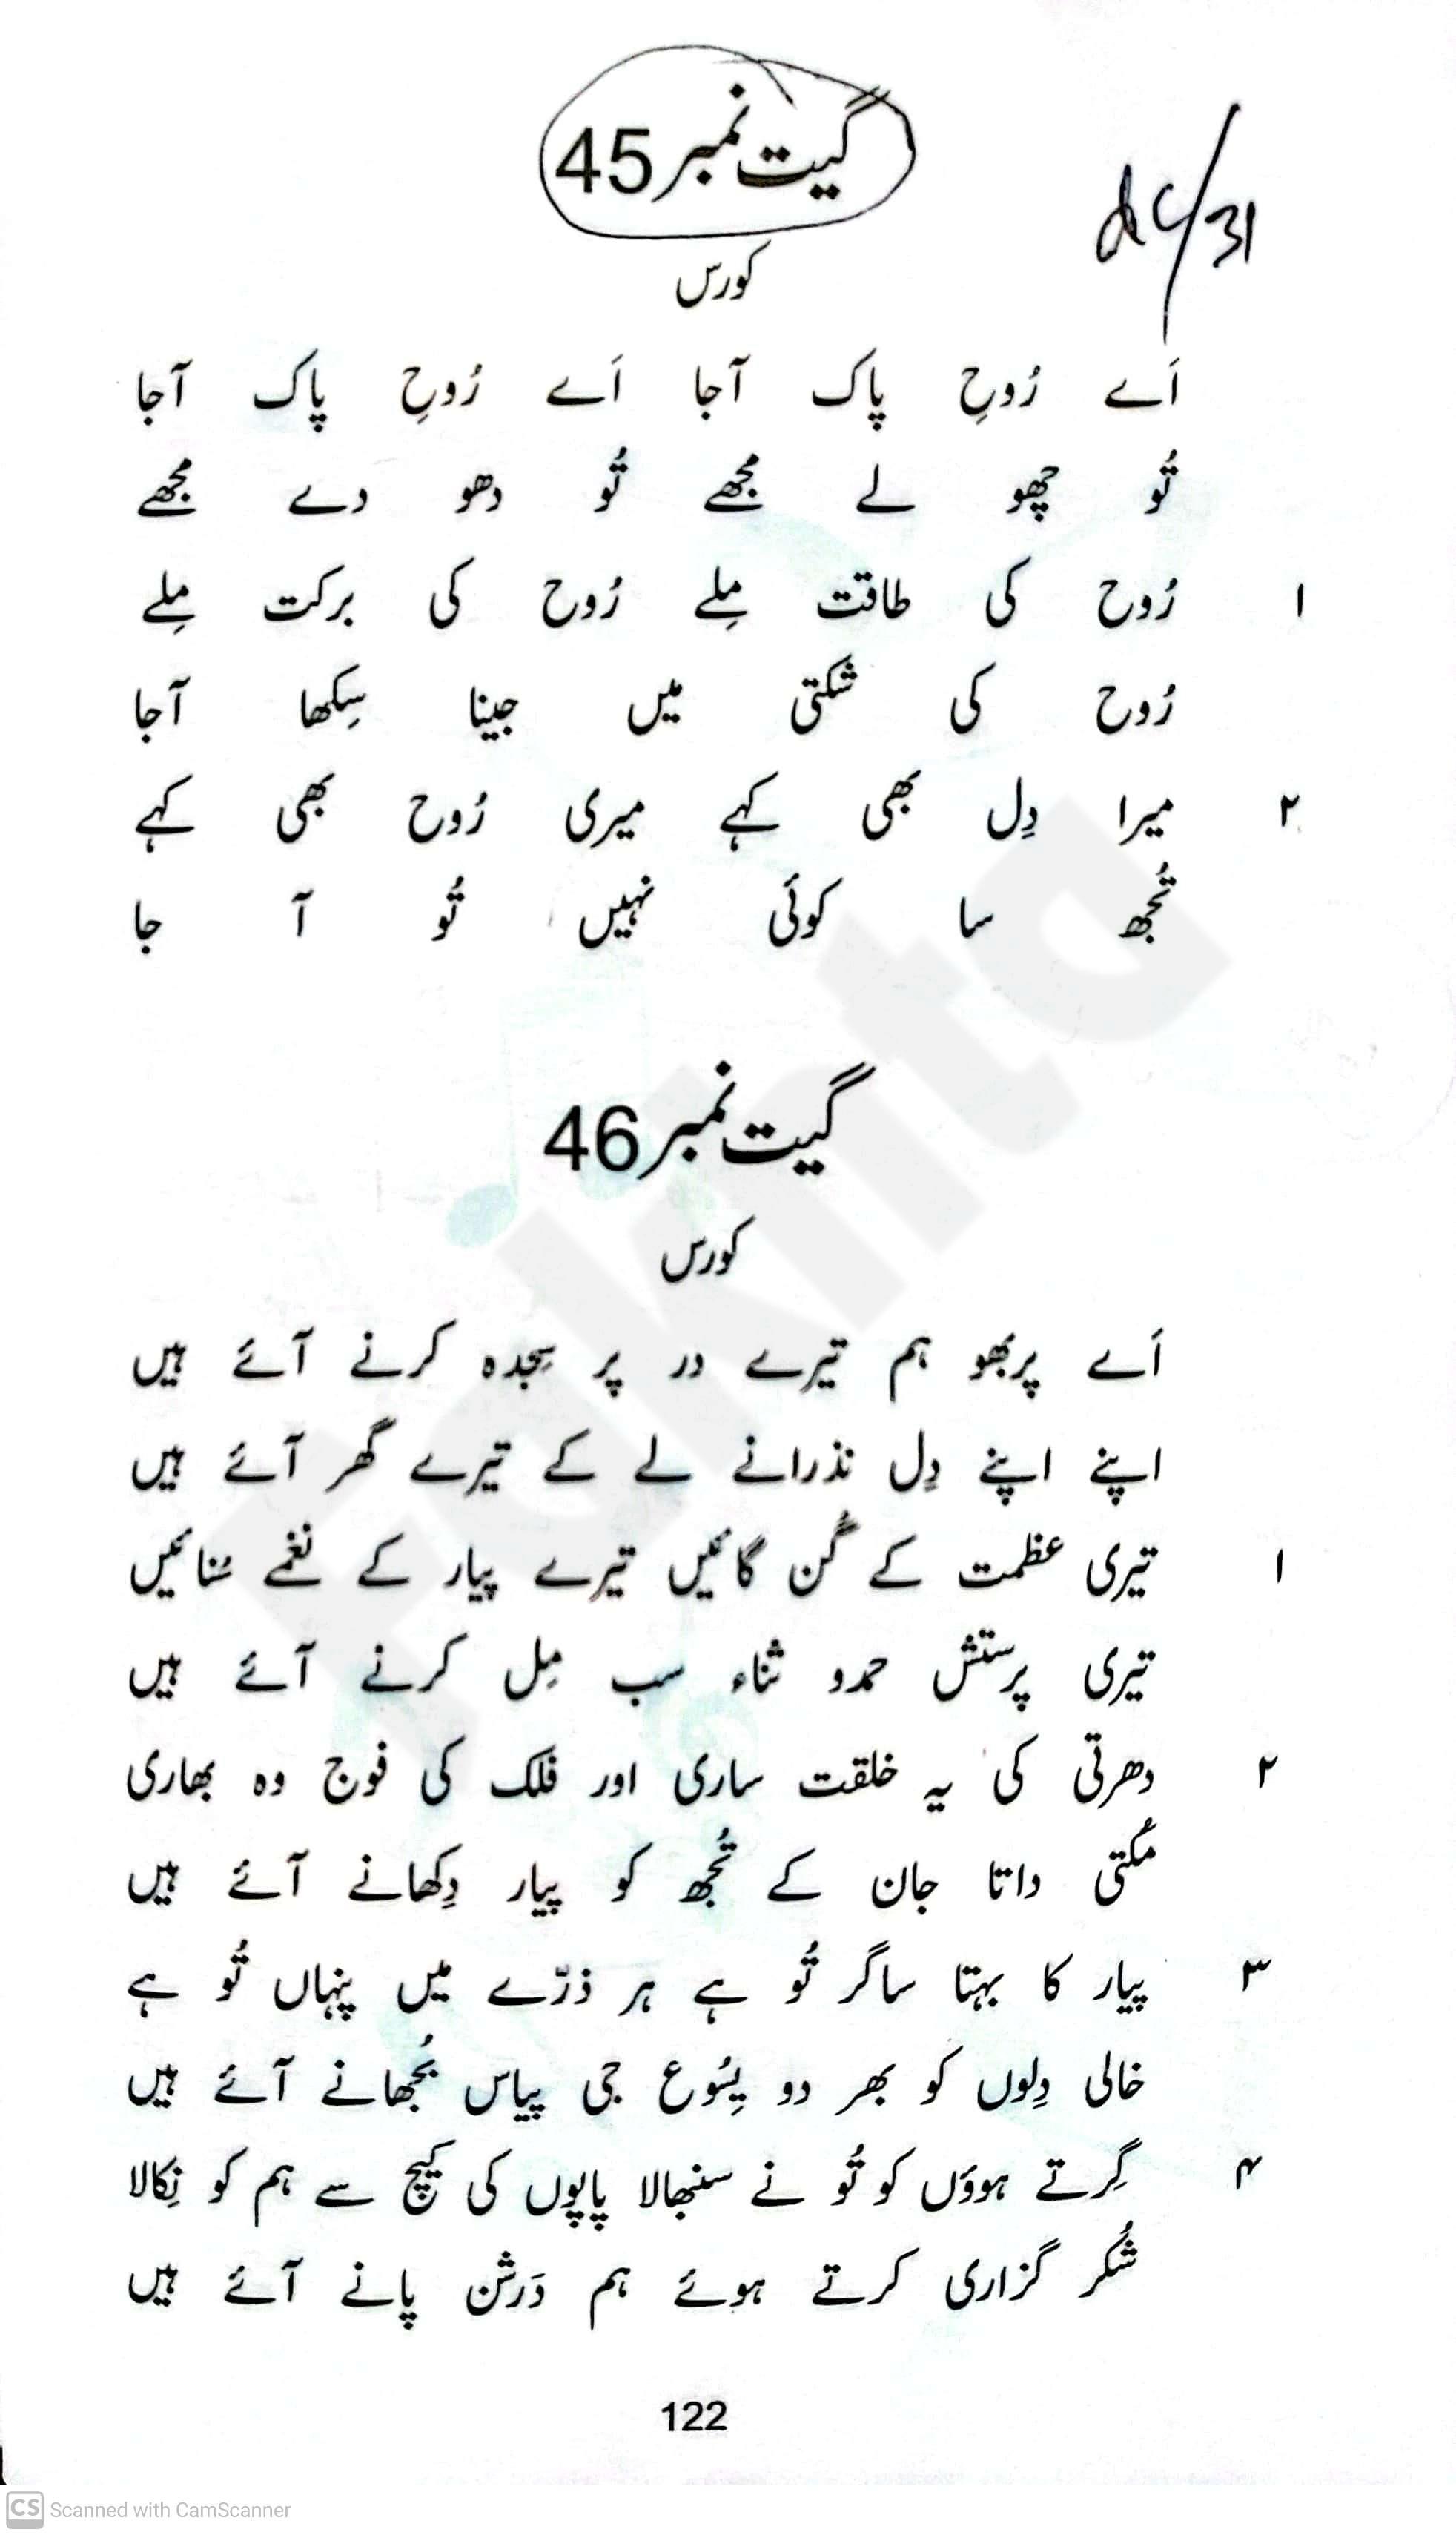 گیت نمبر 45
کورس
اَے رُوحِ پاک آجا اَے رُوحِ پاک آجا
تُو چھو لے مجھے تُو دھو دے مجھے
۱ رُوح کی طاقت مِلے رُوح کی برکت مِلے
رُوح کی شکتی میں جینا سِکھا آجا
۲ میرا دِل بھی کہے میری رُوح بھی کہے
تُجھ سا کوئی نہیں تُو آ جا
گیت نمبر 46
کورس
اَے پربھو ہم تیرے در پر سِجدہ کرنے آئے ہیں
اپنے اپنے دِل نذرانے لے کے تیرے گھر آئے ہیں
۱ تیری عظمت کے گُن گائیں تیرے پیار کے نغمے سُنائیں
تیری پرستش حمدو ثناء سب مِل کرنے آئے ہیں
۲ دھرتی کی یہ خلقت ساری اور فلک کی فوج وہ بھاری
مُکتی داتا جان کے تُجھ کو پیار دِکھانے آئے ہیں
۳ پیار کا بہتا ساگر تُو ہے ہر ذرّے میں پنہاں تُو ہے
خالی دِلوں کو بھر دو یِسُوع جی پیاس بُجھانے آئے ہیں
۴ گِرتے ہوؤں کو تُو نے سنبھالا پاپوں کی کیچ سے ہم کو نِکالا
شُکر گزاری کرتے ہوئے ہم دَرشن پانے آئے ہیں
122
CS Scanned with CamScanner
Fakhta